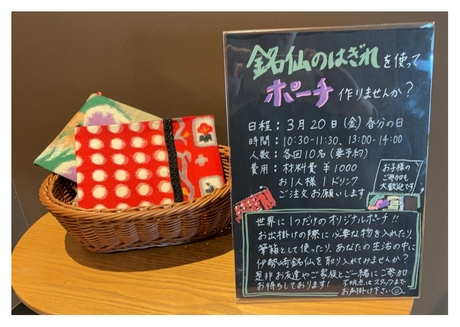 銘仙のはぎれを使って
ポーチ作りませんか?
日程:3月20日(金)春分の日
時間:10:30-11:30、13:00-14:00
人数:各回10名(要予約)
費用:材料費 ¥1000
お1人様1ドリンク
ご注文お願いします
お子様の
ご参加も
大歓迎です
世界に1つだけのオリジナルポーチ!!
お出掛けの際に必要な物を入れたり、
筆箱として使ったり、あなたの生活の中に
伊勢崎銘仙を取り入れてみませんか?
是非お友達やご家族とご一緒にご参加
お待ちしております!
不明点はスタッフまで
お声掛け下さい